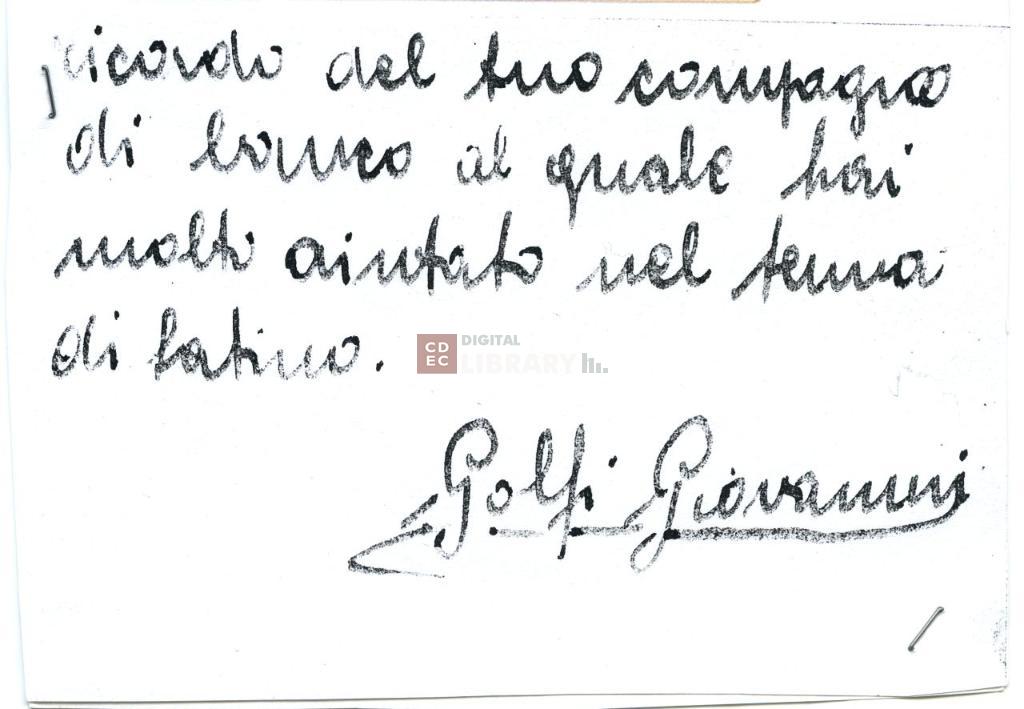 ricordo del tuo compagno
di banco al quale hai
molto aiutato nel tema
di latino.
CDEC DIGITAL LIBRARY
Golfi Giovanni